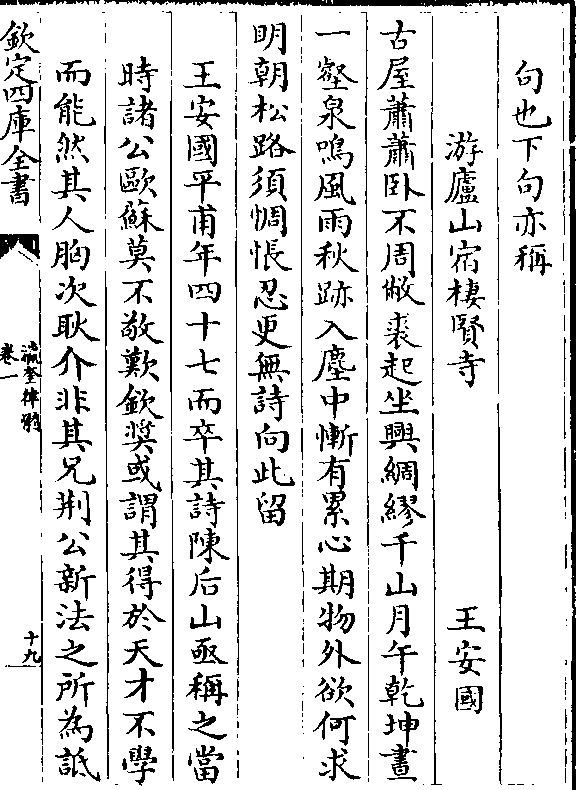 句也下句亦稱
游廬山宿棲賢寺　王安國
古屋蕭蕭卧不周敝裘起坐興綢繆千山月午乾坤晝
一壑泉鳴風雨秋跡入塵中慚有累心期物外欲何求
明朝松路須惆悵忍更無詩向此留
王安國平甫年四十七而卒其詩陳后山亟稱之當
時諸公歐蘇莫不敬歎欽奨或謂其得於天才不學
而能然其人胸次耿介非其兄荆公新法之所為詆
欽定四庫全書
瀛奎律髓
卷一
十九